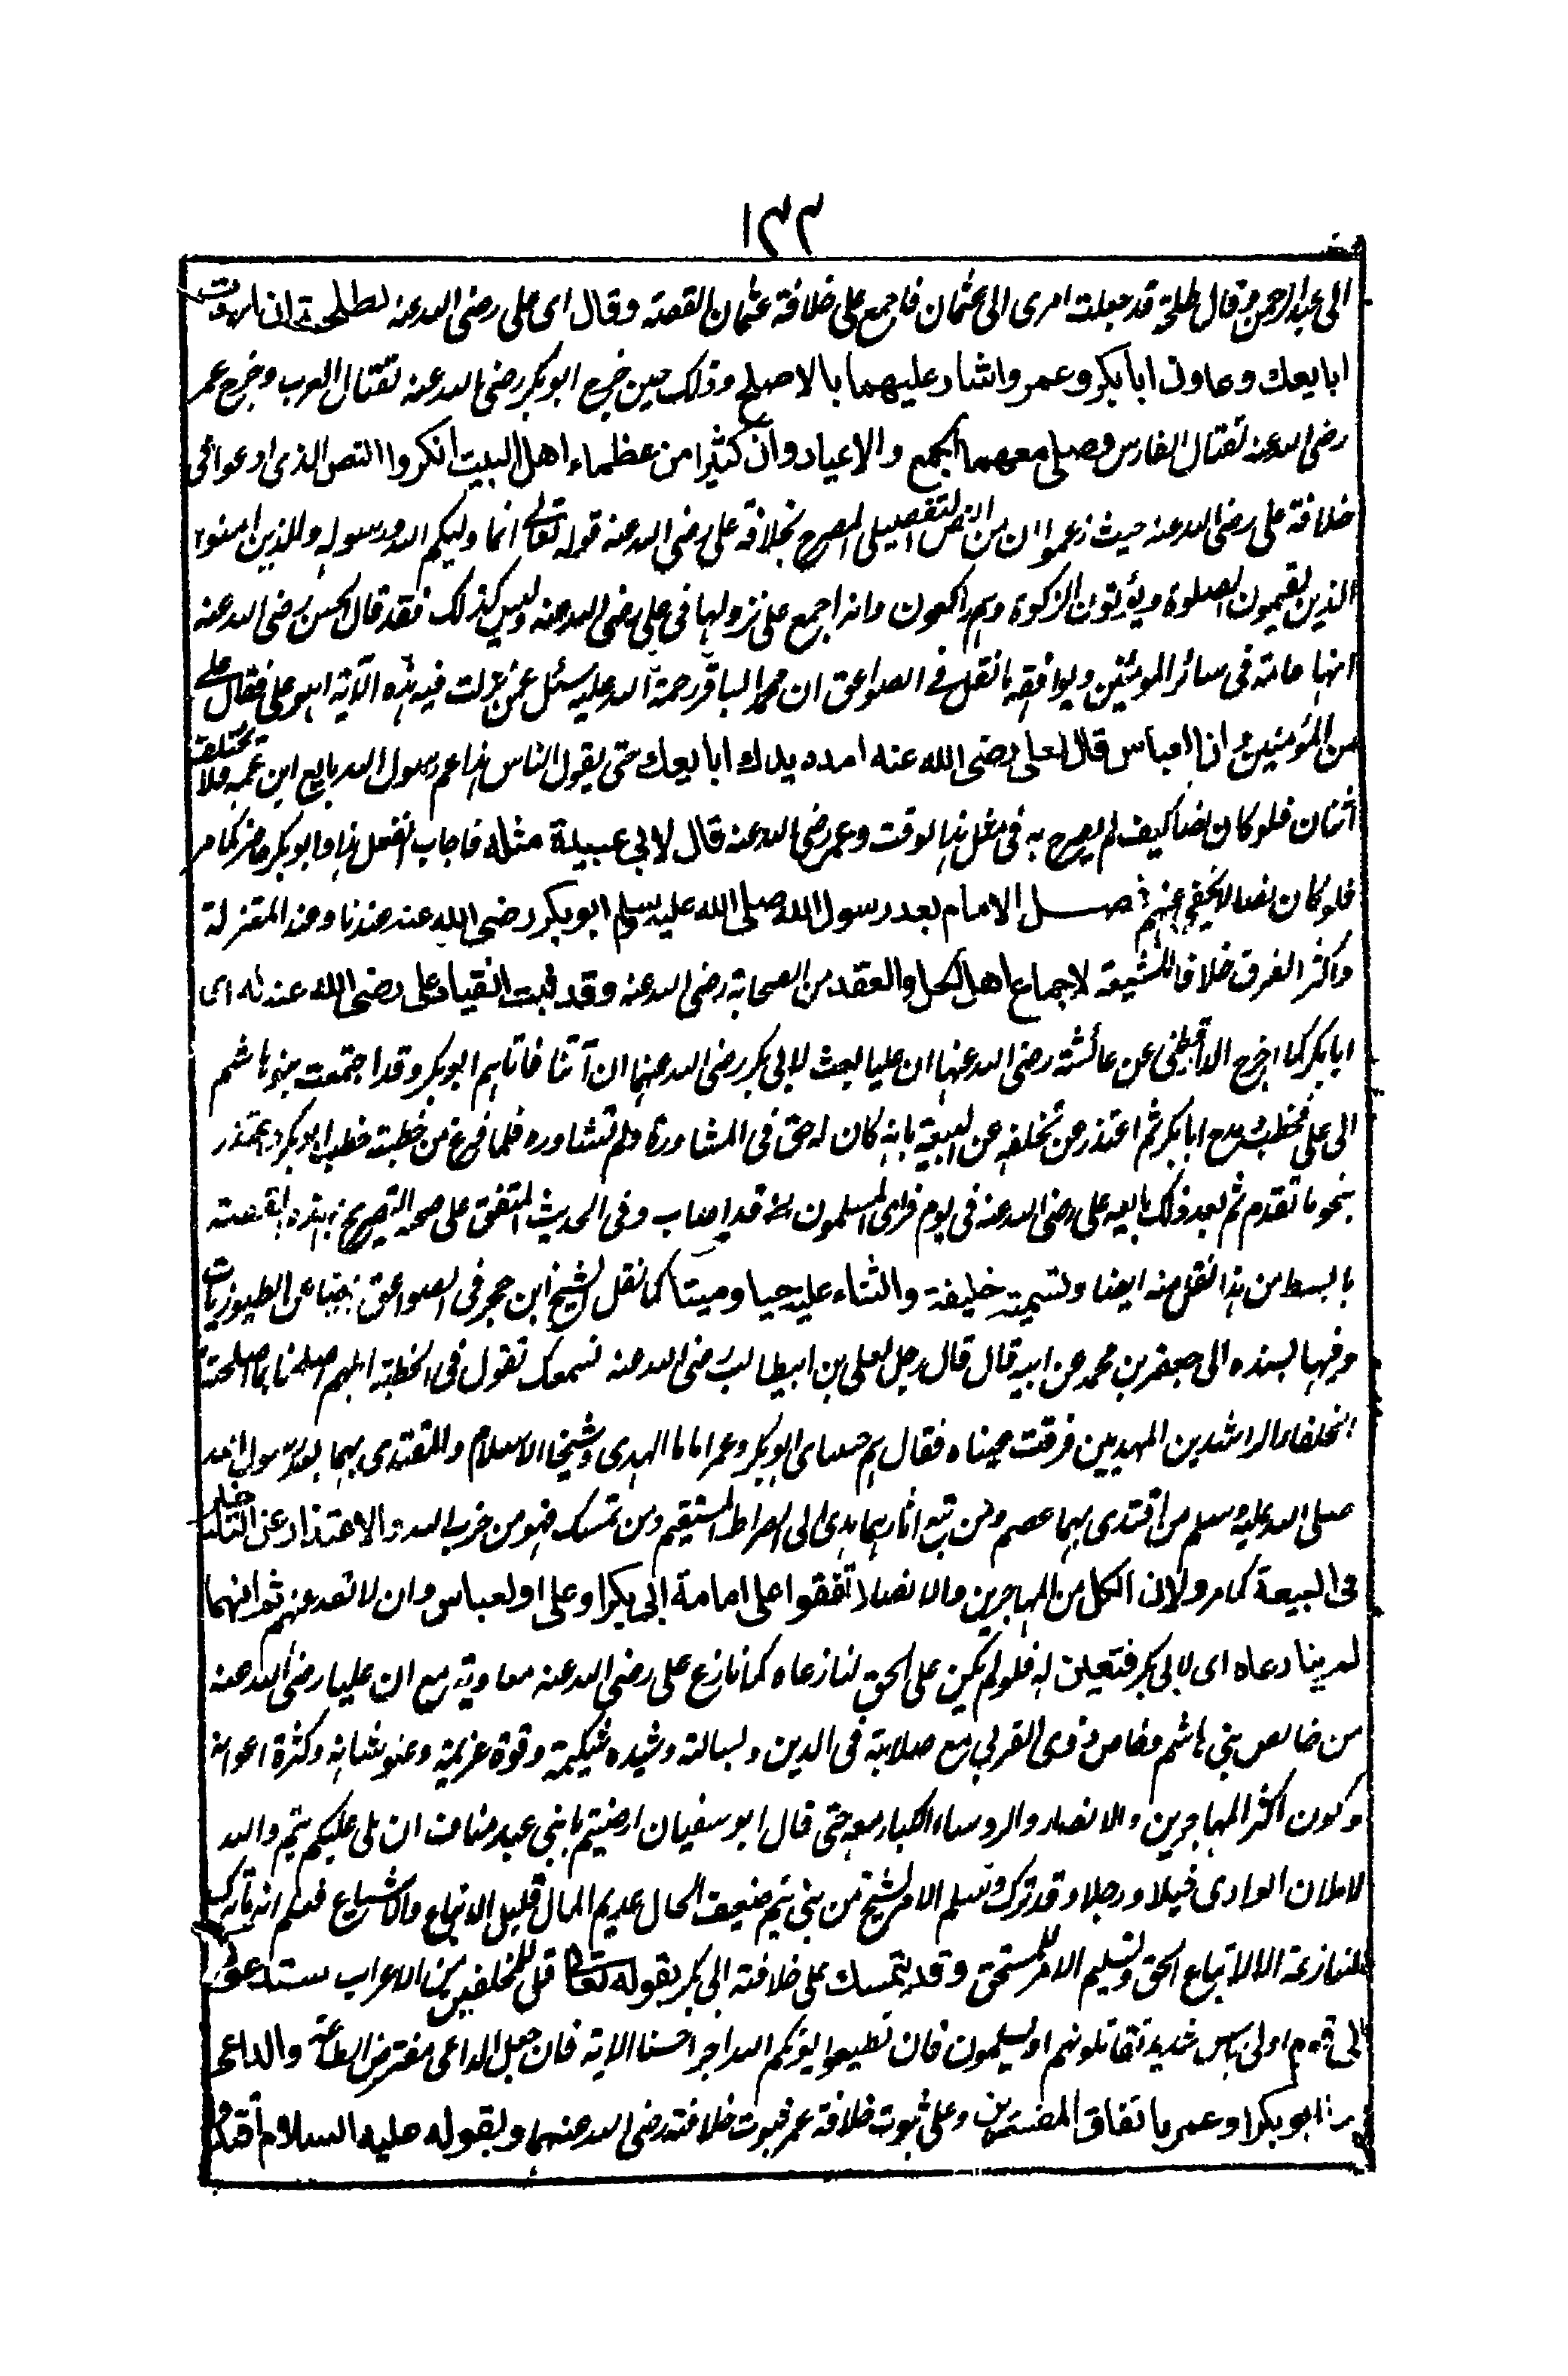 ١٣٣
الى عبد الرحمن وقال طلحة قد جعلت امرى الى عثمان فاجمع على خلافة عثمان القصة وقال اى على رضى الله عنه لطلحة ان
ابايعك وعاون ابا بكر وعمر واشار عليهما بالاصلح وذلك حين خرج ابو بكر رضى الله عنه لقتال العرب وخرج عمر
رضى الله عنه لقتال الفارس وصلى معهما الجمع والاعياد وان كثيرا من عظماء اهل البيت انكروا النص الذى ادعوا فى
خلافة على رضى الله عنه حيث زعموا ان من النص التفصيلى المصرح بخلافة على رضى الله عنه قوله تعالى انما وليكم الله ورسوله والذين امنوا
الذين يقيمون الصلوة ويؤتون الزكوة وهم راكعون وانه اجمع على نزولها فى على رضى الله عنه وليس كذلك فقد قال الحسن رضى الله عنه
انها عامة فى سائر المومنين ويوافقه ما نقل فى الصواعق ان محمد الباقر رحمة الله عليه سئل عمن نزلت فيه هذه الآية اهو على فقال على
من المؤمنين وان العباس قال لعلى رضى الله عنه امدد يدك ابايعك حتى يقول الناس هذا عم رسول الله بايع ابن عمه فلا يختلف
اثنان فلو كان نصا كيف لم يصرح به فى مثل هذا الوقت وعمر رضى الله عنه قال لابى عبيدة مثله فاجاب اتفعل هذا وابو بكر حاضر كما مر
فلو كان نصا لا يخفى عنهم فصل الامام بعد رسول الله صلى الله عليه وسلم ابو بكر رضى الله عنه عندنا وعند المعتزلة
واكثر الفرق خلافا للشيعة لاجماع اهل الحل والعقد من الصحابة رضى الله عنه وقد ثبت انقياد على رضى الله عنه له اى
ابا بكر كما اخرج الدارقطنى عن عائشة رضى الله عنها ان عليا بعث لابى بكر رضى الله عنهما ان آتنا فاتاهم ابو بكر وقد اجتمعت بنو هاشم
الى على فخطب ومدح ابا بكر ثم اعتذر عن تخلفه عن البيعة بانه كان له حق فى المشاورة ولم تشاوره فلما فرغ من خطبته خطب ابو بكر واعتذر
بنحو ما تقدم ثم بعد ذلك بايعه على رضى الله عنه فى يوم فراى المسلمون انه قد اصاب وفى الحديث المتفق على صحة التصريح بهذه القصة
بابسط من هذا نقل منه ايضا وتسميته خليفة والثناء عليه حيا وميتا كما نقل الشيخ ابن حجر فى الصواعق ايضا عن الطيوريات
وفيها بسنده الى جعفر بن محمد عن ابيه قال قال رجل لعلى بن ابيطالب رضى الله عنه نسمعك تقول فى الخطبة اللهم اصلحنا بما اصلحت به
الخلفاء الراشدين المهديين فرقت عيناه فقال هم حبيباى ابو بكر وعمر اماما الهدى وشيخا الاسلام والمقتدى بهما بعد رسول الله
صلى الله عليه وسلم من اقتدى بهما عصم ومن تبع اثارهما هدى الى الصراط المستقيم ومن تمسك فهو من حزب الله والاعتذار عن التاخير
فى البيعة كما مر ولان الكل من المهاجرين والانصار اتفقوا على امامة ابى بكر او على او العباس وان لا تعد عنهم ثم انهما
لم ينازعاه اى لابى بكر فتعين له فلو لم يكن على الحق لنازعاه كما نازع على رضى الله عنه معاوية مع ان عليا رضى الله عنه
من خالص بنى هاشم وخاص ذوى القربى مع صلابة فى الدين وبسالته وشده شكيمة وقوة عزيمة وعلو شانه وكثرة اعوانه
وكون اكثر المهاجرين والانصار والروساء الكبار معه حتى قال ابو سفيان ارضيتم يا بنى عبد مناف ان يلى عليكم تيم والله
لاملان الوادى خيلا ورجلا وقد ترك وسلم الامر لشيخ من بنى تيم ضعيف الحال عديم المال قليل الاتباع والاشياع فعلم انه تارك
للمنازعة الا لاتباع الحق وتسليم الامر للمستحق وقد يتمسك على خلافة ابى بكر بقوله تعالى قل للمخلفين من الاعراب ستدعون
الى قوم اولى باس شديد تقاتلونهم او يسلمون فان تطيعوا يؤتكم الله اجرا حسنا الاية فان جعل الداعى مفترض الطاعة والداعى
ابو بكر او عمر باتفاق المفسرين وعلى ثبوت خلافة عمر فبوت خلافته رضى الله عنهما وبقوله عليه السلام اقتدوا